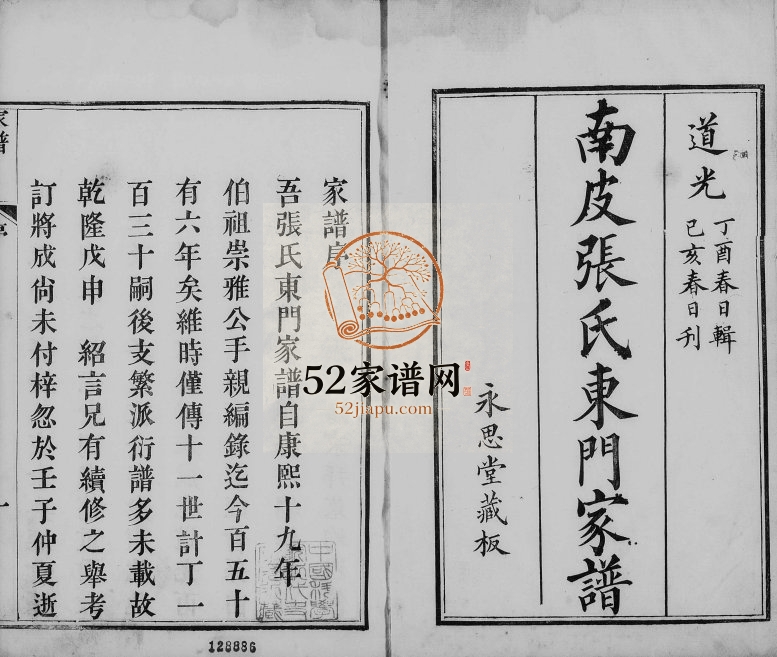 道光
丁酉春日輯
己亥春日刊
南皮張氏東門家譜
永思堂藏板
家譜序
吾張氏東門家譜自康熙十九年
伯祖崇雅公手親編錄迄今百五十
有六年矣維時僅傳十一世計丁一
百三十嗣後支繁派衍譜多未載故
乾隆戊申 紹言兄有續修之舉考
訂將成尙未付梓忽於壬子仲夏逝
家譜
序
一
52家谱网
52jiapu.com
128886